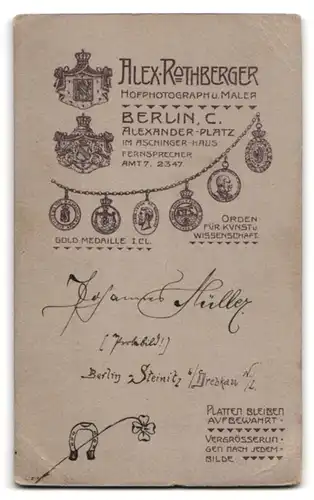 ALEX·ROTHBERGER
HOFPHOTOGRAPH U. MALER
BERLIN, C.
ALEXANDER-PLATZ
IM ASCHINGER-HAUS
FERNSPRECHER
AMT 7. 2347.
ORDEN
FÜR KVNST U
WISSENSCHAFT.
GOLD. MEDAILLE I. CL.
Johannes Müller.
[Probebild!]
Berlin - Steinitz b/Drebkau N/L.
PLATTEN BLEIBEN
AUFBEWAHRT ·
VERGRÖSSERUN ·
GEN NACH JEDEM ·
BILDE